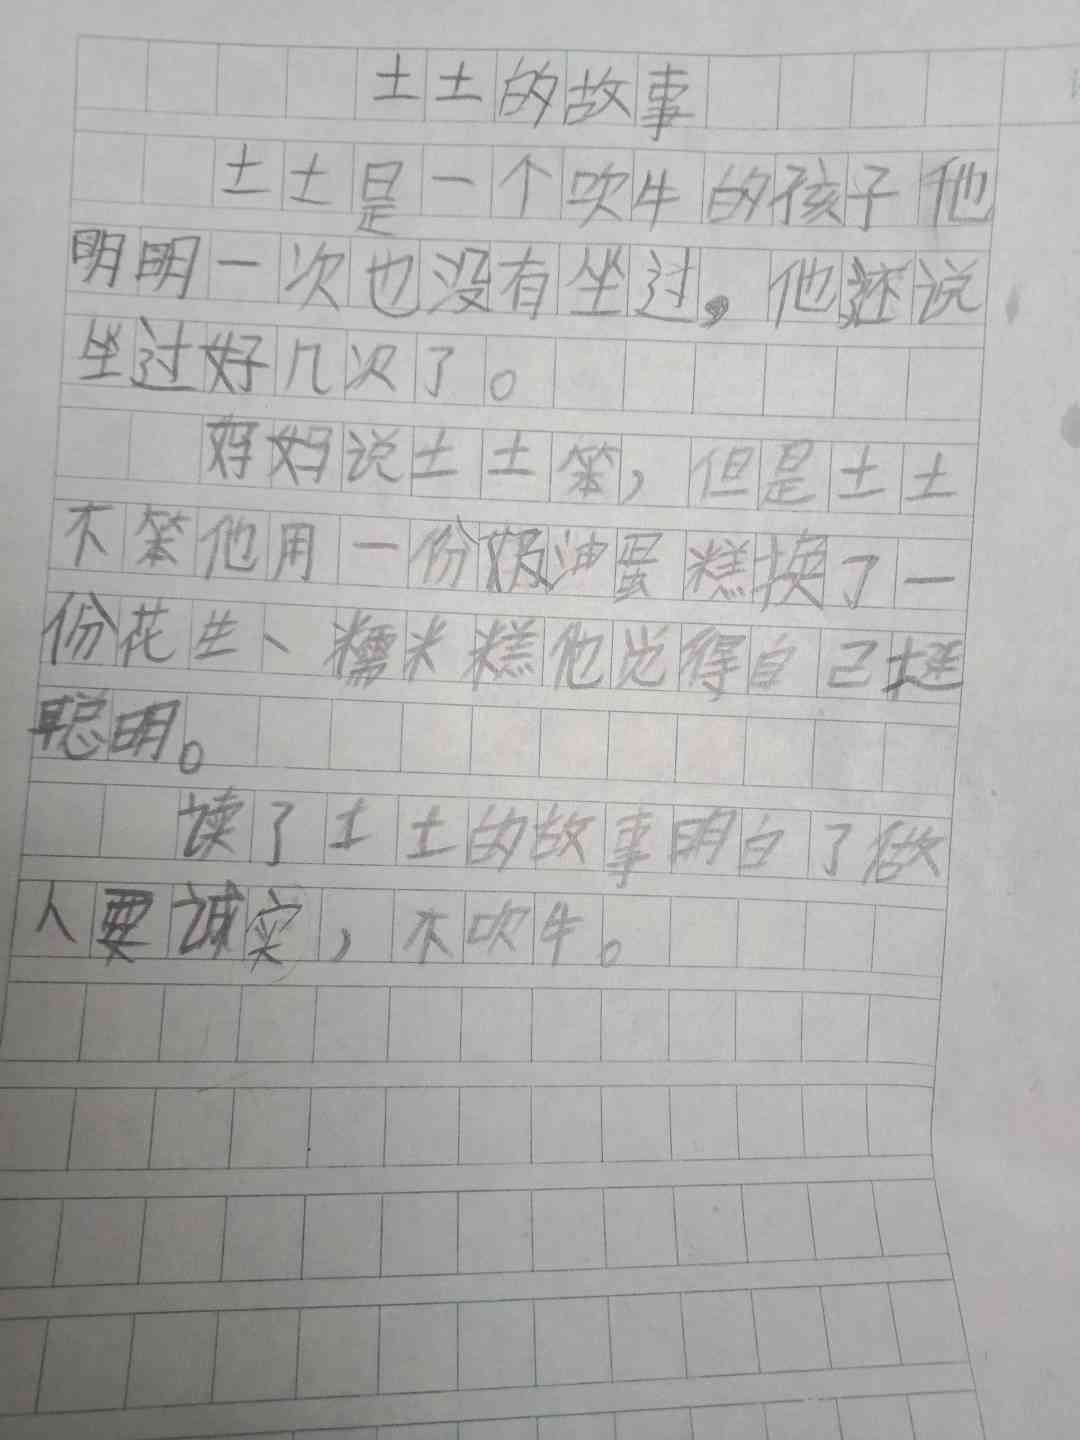 土土的故事
土土是一个吹牛的孩子他
明明一次也没有坐过，他还说
坐过好几次了。
好好说土土笨，但是土土
不笨他用一份奶油蛋糕换了一
份花生、糯米糕他觉得自己挺
聪明。
读了土土的故事明白了做
人要诚实，不吹牛。